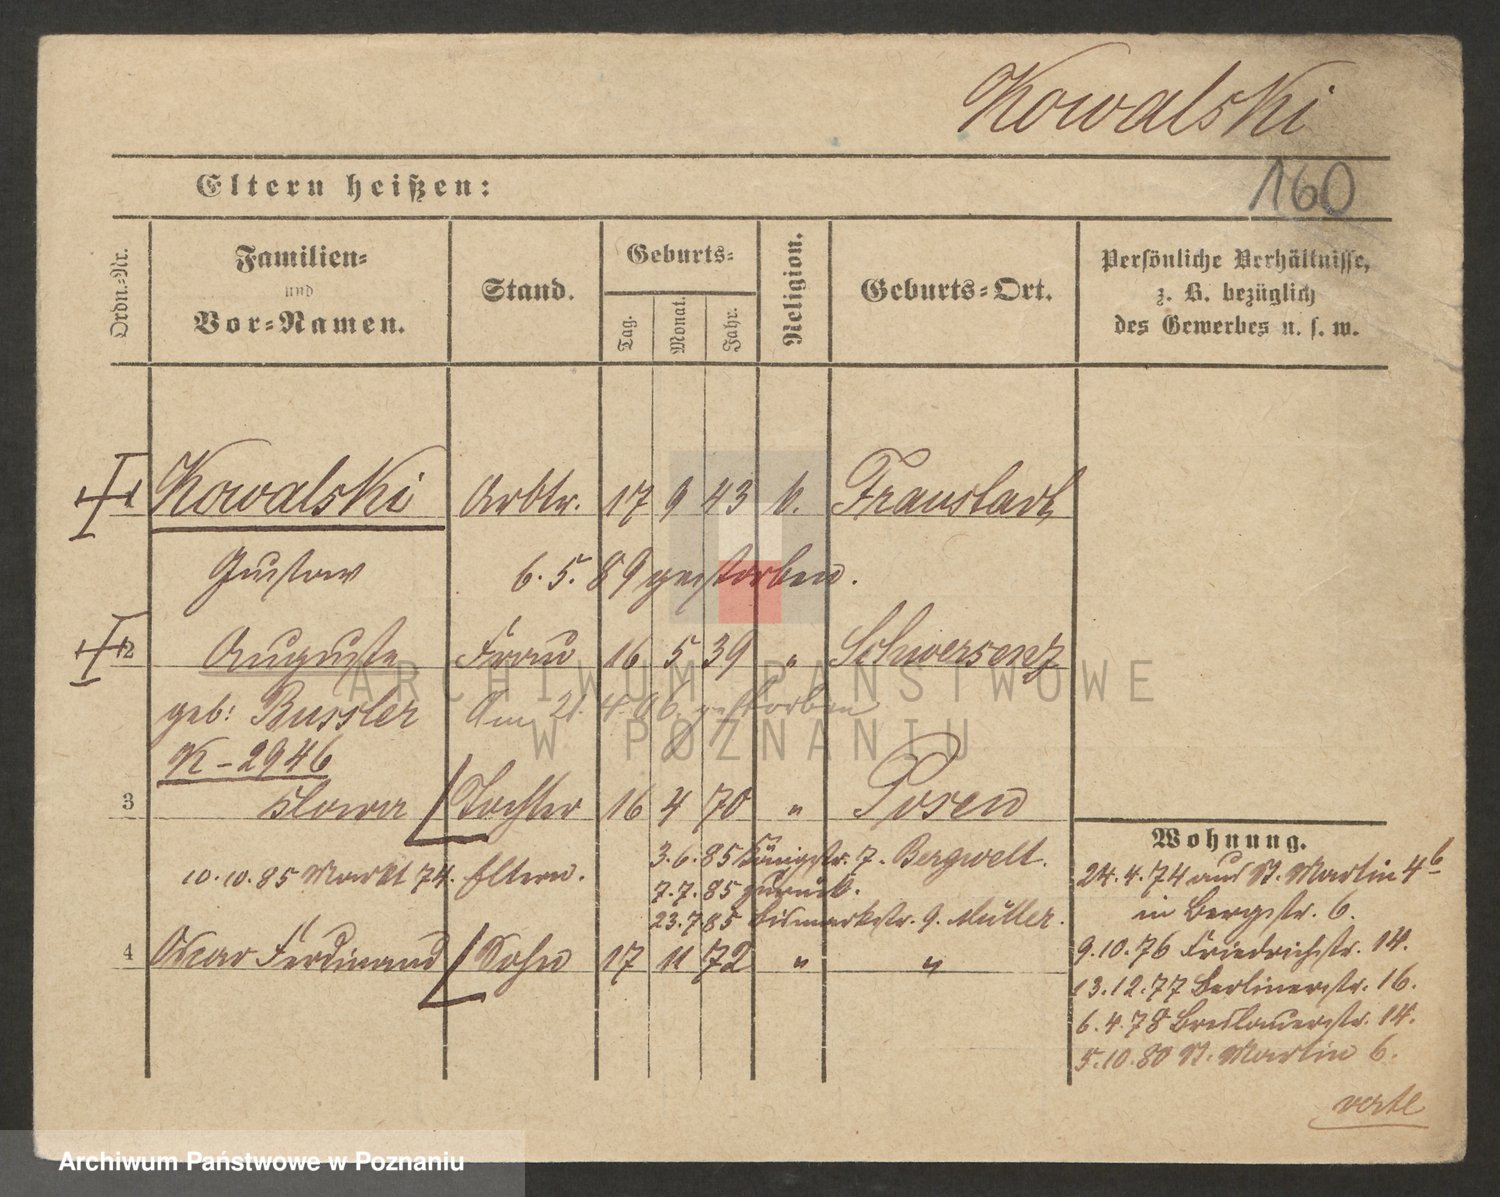 Kowalski
160
Eltern heißen:
Ordn.-Nr.
Familien-
und
Vor-Namen.
Stand.
Geburts-
Tag.
Monat.
Jahr.
Religion.
Geburts-Ort.
Persönliche Verhältnisse,
z. B. bezüglich
des Gewerbes u. s. w.
1 Kowalski Arbtr. 17 9 43 Fraustadt
Gustav 6. 5. 89 gestorben.
2 Auguste Frau 16 5 39 " Schwersenz
geb: Bussler Am 21. 4. 06. gestorben
K - 2946
3 Tochter 16 4 70 " Posen
3. 6. 85 Königstr. 7. Bergwelt.
10. 10. 85 Markt 74. Eltern.
7. 7. 85 zurück.
23. 7. 85 Bismarkstr. 9. Müller.
4 Oscar Ferdinand Sohn 17 11 72 " "
Wohnung.
24. 4. 74 aus St. Martin 4
in Bergstr. 6.
9. 10. 76 Friedrichstr. 14.
13. 12. 77 Berlinerstr. 16.
6. 4. 78 Breslauerstr. 14.
5. 10. 80 St. Martin 6.
verte
ARCHIWUM PAŃSTWOWE
W POZNANIU
Archiwum Państwowe w Poznaniu